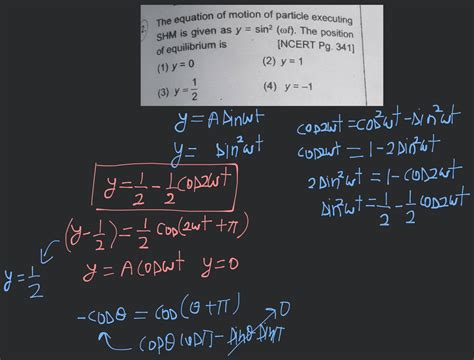 The equation of motion of particle executing
SHM is given as y = sin² (ωt). The position
of equilibrium is [NCERT Pg. 341]
(1) y = 0 (2) y = 1
(3) y = 1/2 (4) y = –1
y = A sinωt
y = sin²ωt
y = 1/2 - 1/2 cos2ωt
(y - 1/2) = 1/2 cos(2ωt + π)
y = A cosωt y = 0
y = 1/2
-cosθ = cos(θ + π)
cosθ cosπ - sinθ sinπ 0
cos2ωt = cos²ωt - sin²ωt
cos2ωt = 1 - 2 sin²ωt
2 sin²ωt = 1 - cos2ωt
sin²ωt = 1/2 - 1/2 cos2ωt